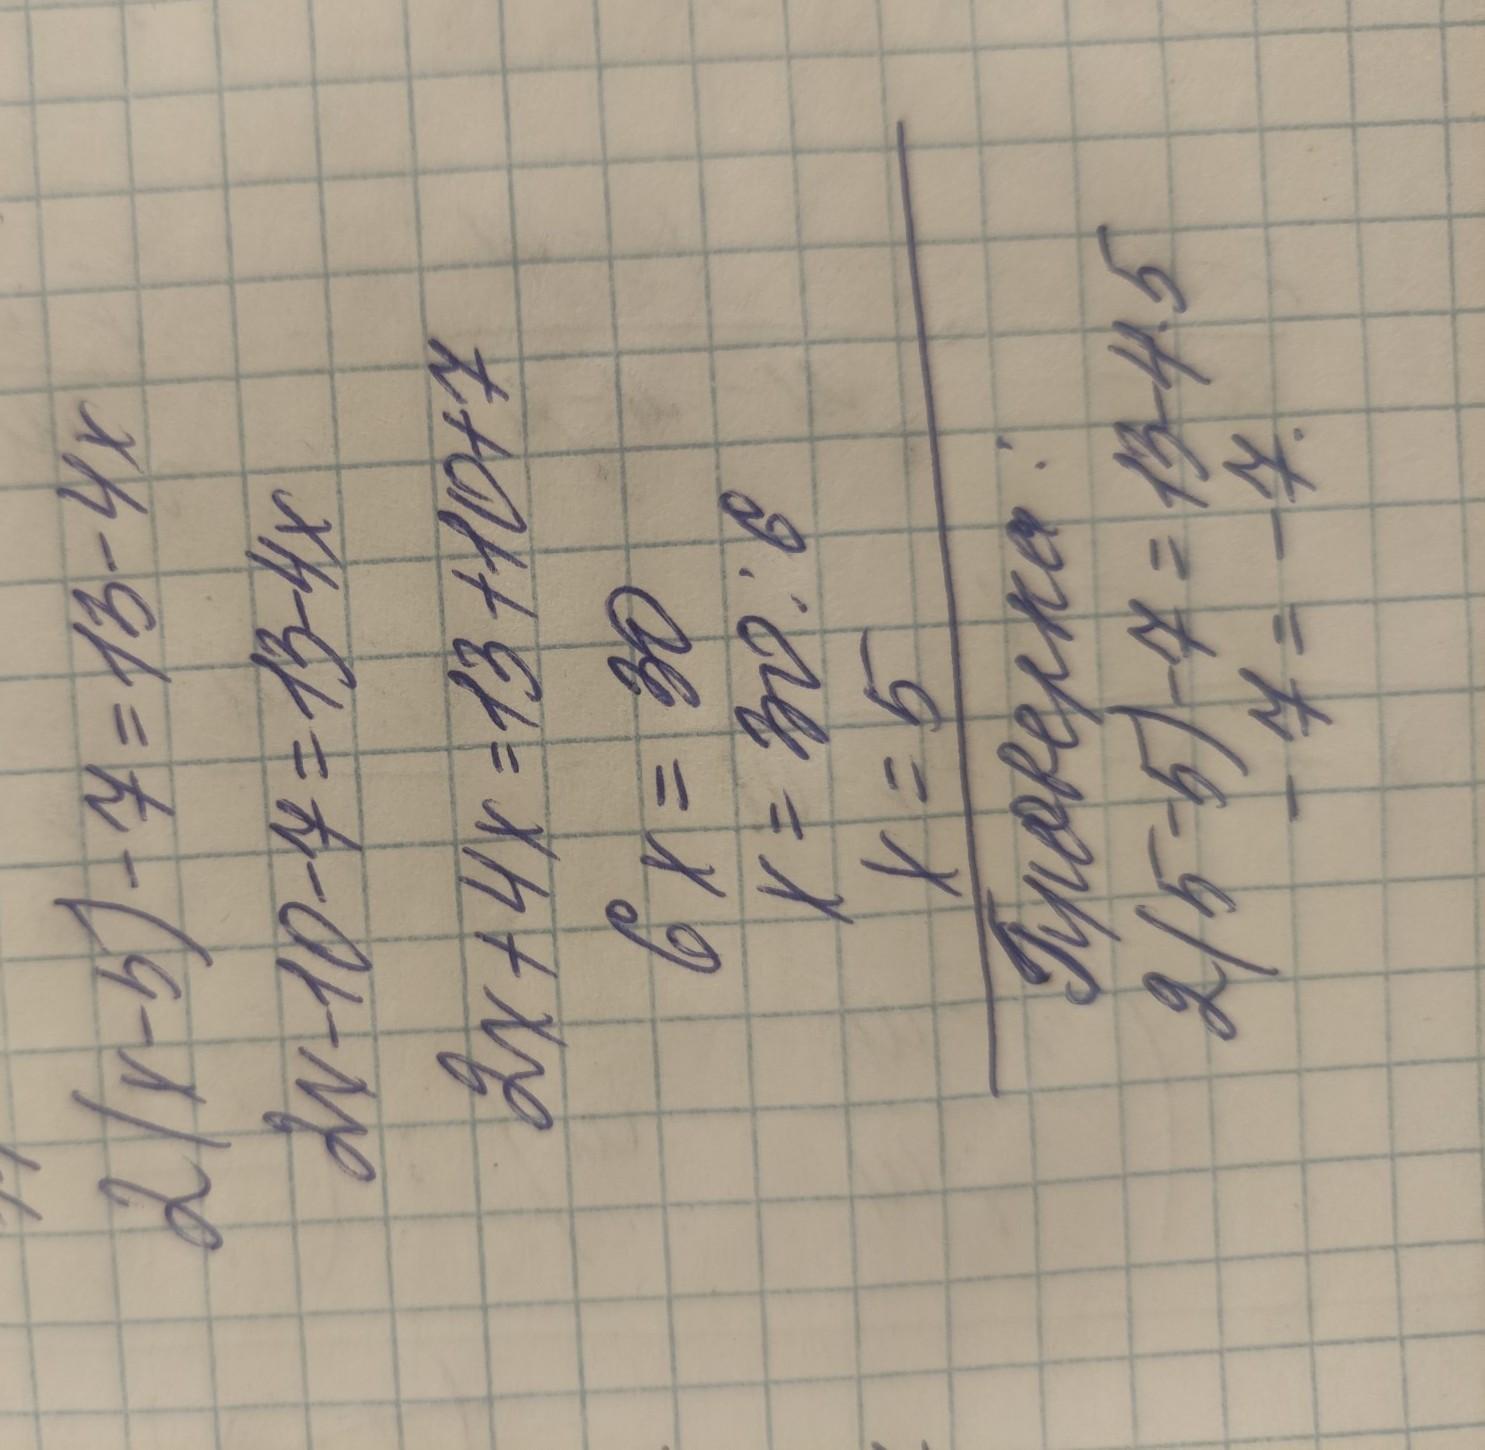 2(x-5)-7=13-4x
2x-10-7=13-4x
2x+4x=13+10+7
6x=30
x=30:6
x=5
Проверка:
2(5-5)-7=13-4·5
-7=-7.